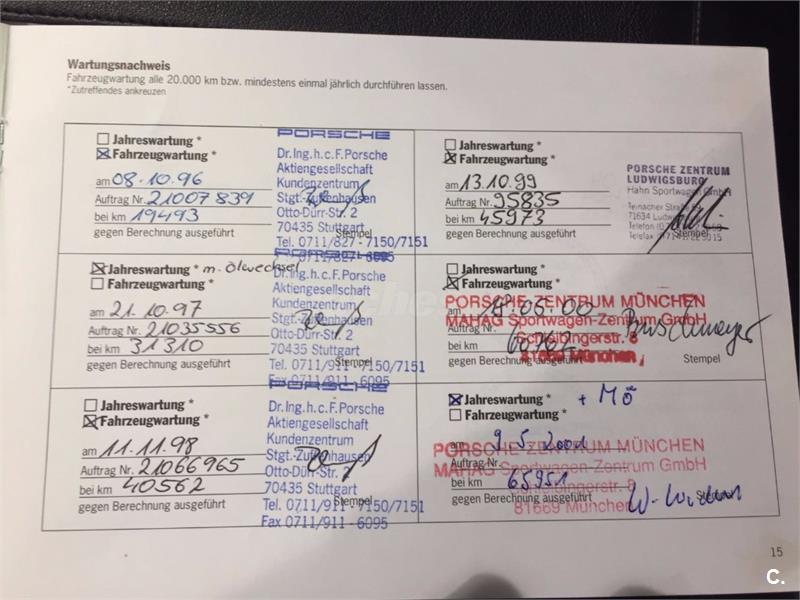 Wartungsnachweis
Fahrzeugwartung alle 20.000 km bzw. mindestens einmal jährlich durchführen lassen.
*Zutreffendes ankreuzen
Jahreswartung *
Fahrzeugwartung *
am 08.10.96
Auftrag Nr. 21007839
bei km 19493
gegen Berechnung ausgeführt
PORSCHE
Dr.Ing.h.c.F.Porsche
Aktiengesellschaft
Kundenzentrum
Stgt.-Zuffenhausen
Otto-Dürr-Str. 2
70435 Stuttgart
Stempel
Tel. 0711/827 - 7150/7151
Jahreswartung *
Fahrzeugwartung *
am 13.10.99
Auftrag Nr. 95835
bei km 45973
gegen Berechnung ausgeführt
PORSCHE ZENTRUM
LUDWIGSBURG
Hahn Sportwagen GmbH
Stempel
Jahreswartung * m. Ölwechsel
Fahrzeugwartung *
am 21.10.97
Auftrag Nr. 21035556
bei km 31310
gegen Berechnung ausgeführt
PORSCHE
Dr.Ing.h.c.F.Porsche
Aktiengesellschaft
Kundenzentrum
Stgt.-Zuffenhausen
Otto-Dürr-Str. 2
70435 Stuttgart
Stempel
Tel. 0711/911 - 7150/7151
Fax 0711/911 - 6095
Jahreswartung *
Fahrzeugwartung *
am
Auftrag Nr.
bei km
gegen Berechnung ausgeführt
PORSCHE ZENTRUM MÜNCHEN
MAHAG Sportwagen-Zentrum GmbH
Schleibingerstr. 8
81669 München
Stempel
Jahreswartung *
Fahrzeugwartung *
am 11.11.98
Auftrag Nr. 21066965
bei km 40562
gegen Berechnung ausgeführt
PORSCHE
Dr.Ing.h.c.F.Porsche
Aktiengesellschaft
Kundenzentrum
Stgt.-Zuffenhausen
Otto-Dürr-Str. 2
70435 Stuttgart
Stempel
Tel. 0711/911 - 7150/7151
Fax 0711/911 - 6095
Jahreswartung * + MÖ
Fahrzeugwartung *
am 9.5.2001
Auftrag Nr.
bei km 65951
gegen Berechnung ausgeführt
PORSCHE ZENTRUM MÜNCHEN
MAHAG Sportwagen-Zentrum GmbH
Schleibingerstr. 8
81669 München
Stempel
15
C.